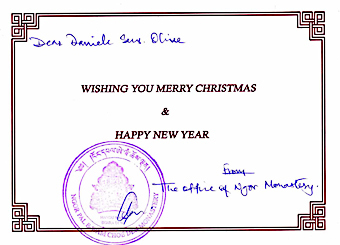 Dear Daniele
WISHING YOU MERRY CHRISTMAS
&
HAPPY NEW YEAR
From
The office of Ngor Monastery.